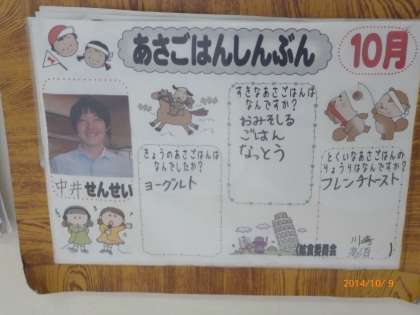 あさごはんしんぶん
10月
中井 せんせい
きょうのあさごはんは
なんでしたか?
ヨーグルト
すきなあさごはんは
なんですか?
おみそしる
ごはん
なっとう
とくいなあさごはんの
りょうりはなんですか?
フレンチトースト
(給食委員会
川崎
)
2014/10/ 9